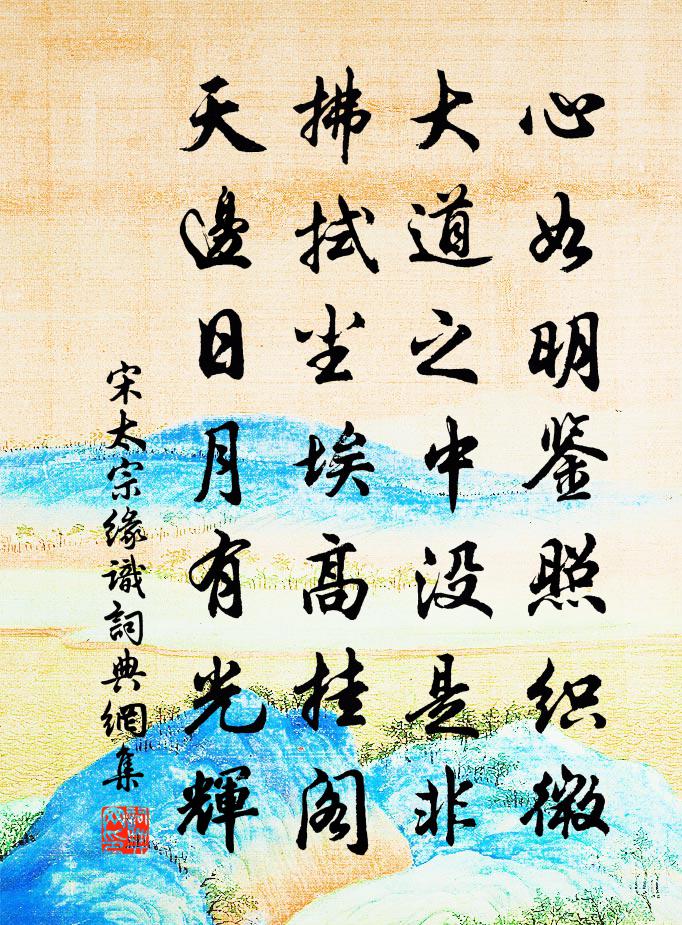 心如明鉴照织微
大道之中没是非
拂拭尘埃高挂阁
天邊日月有光輝
宋太宗緣識詞典網集